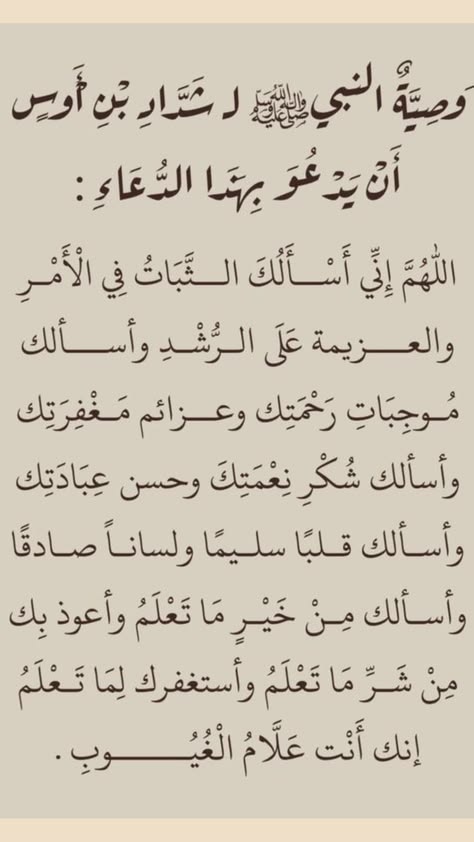 وَصِيَّةُ النبي ﷺ لـ شَدَّادِ بْنِ أَوسٍ
أَنْ يَدْعُوَ بِهَذا الدُّعَاءِ :
اللهُمَّ إِنِّي أَسْــأَلُكَ الـــثَّبَاتُ فِي الْأَمْــرِ
والعــــزيمة عَلَى الــرُّشْــدِ وأســــألك
مُــوجِبَاتِ رَحْمَتِك وعــزائم مَــغْفِرَتِك
وأسألك شُكْرِ نِعْمَتِكَ وحسن عِبَادَتِك
وأســألك قــلبًا سلــيمًا ولسانــاً صــادقًا
وأســألك مِــنْ خَيْــرٍ مَا تَعْلَمُ وأعوذ بِك
مِنْ شَــرِّ مَا تَعْلَمُ وأستغفرك لِمَا تَــعْلَمُ
إنك أَنْت عَلَّامُ الْغُيُـــــــوبِ .